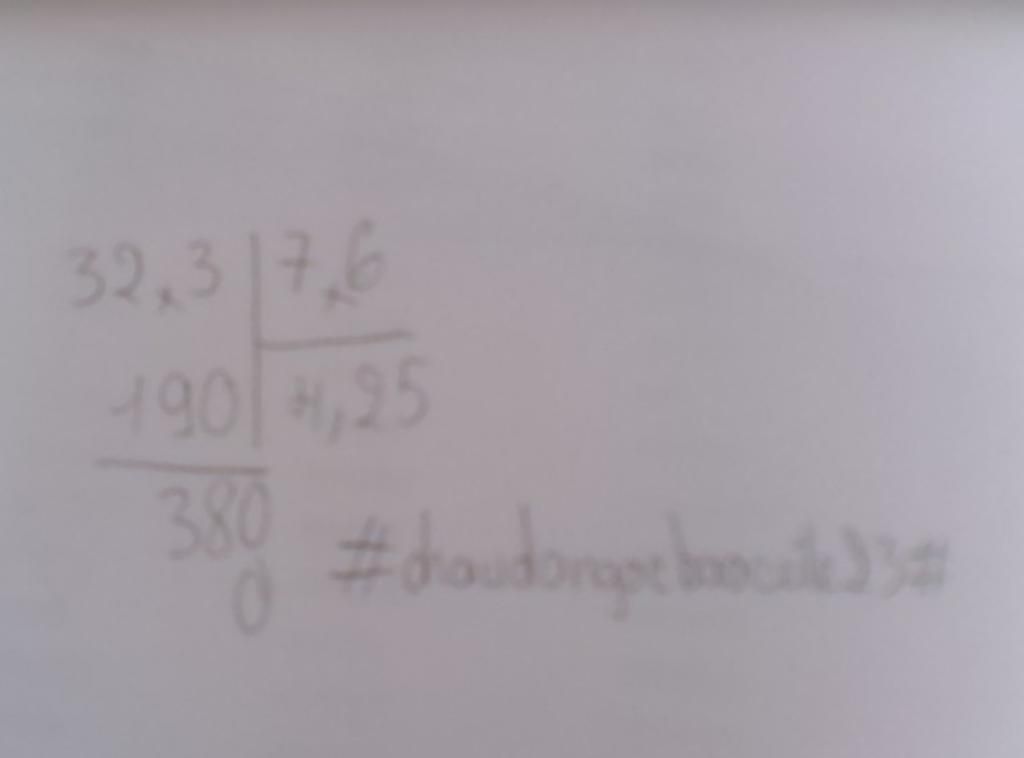 32,3 7,6
190 4,25
380
0